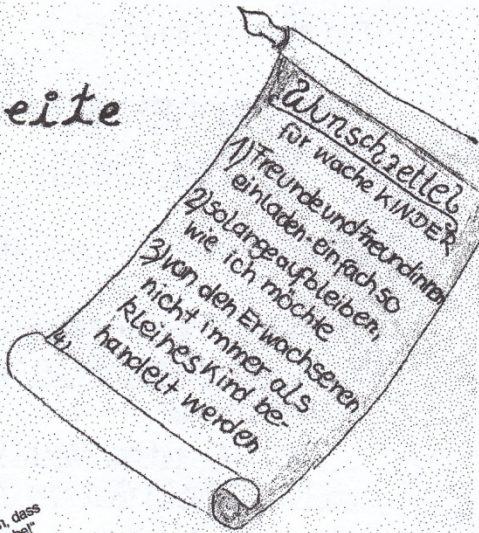 eite
Wunschzettel
für wache KINDER
1) Freunde und Freundinnen
einladen-einfach so
2) solange aufbleiben,
wie ich möchte
3) von den Erwachsenen
nicht immer als
kleines Kind be-
handelt werden
4)
n, dass
bel"